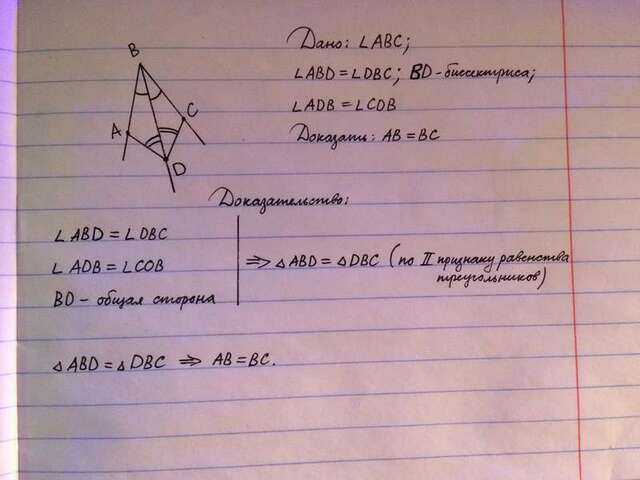 Дано: ∠ABC;
∠ABD = ∠DBC; BD - биссектриса;
∠ADB = ∠CDB
Доказать: AB = BC
B
A
C
D
Доказательство:
∠ABD = ∠DBC
∠ADB = ∠COB
BD - общая сторона
⇒ △ABD = △DBC (по II признаку равенства
треугольников)
△ABD = △DBC ⇒ AB = BC.